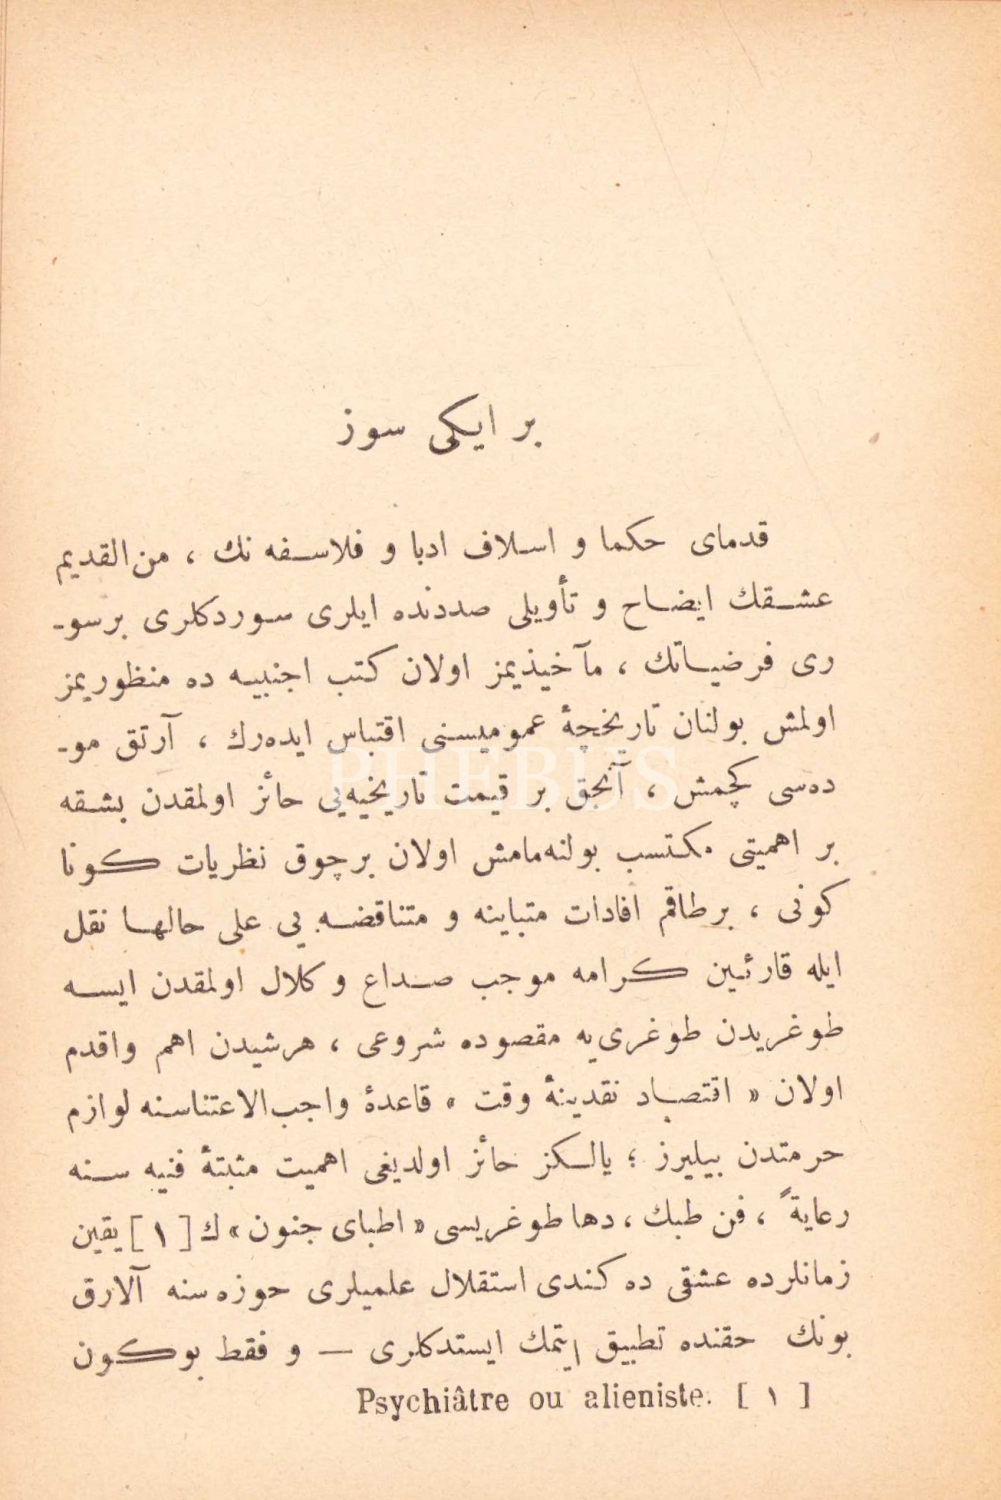 بر ایکی سوز
قدمای حکما و اسلاف ادبا و فلاسفه نك ، من القدیم
عشقك ایضاح و تأویلی صددنده ایلری سوردکلری برسو-
ری فرضیاتك ، مآخیذیمز اولان کتب اجنبیه ده منظوریمز
اولمش بولنان تاریخچهٔ عمومیسنی اقتباس ایده‌رك ، آرتق مو-
ده‌سی کچمش ، آنجق بر قیمت تاریخیه‌یی حائز اولمقدن بشقه
بر اهمیتی مکتسب بولنه‌مامش اولان برچوق نظریات کونا
کونی ، برطاقم افادات متباینه و متناقضه‌یی علی حالها نقل
ایله قارئین کرامه موجب صداع و کلال اولمقدن ایسه
طوغریدن طوغری‌یه مقصوده شروعی ، هرشیدن اهم واقدم
اولان « اقتصاد نقدینهٔ وقت » قاعدهٔ واجب‌الاعتناسنه لوازم
حرمتدن بیلیرز ؛ یالکز حائز اولدیغی اهمیت مثبتهٔ فنیه سنه
رعایةً ، فن طبك ، دها طوغریسی « اطبای جنون » ك [ ١ ] یقین
زمانلرده عشقی ده کندی استقلال علمیلری حوزه سنه آلارق
بونك حقنده تطبیق ایتمك ایستدکلری — و فقط بوکون
Psychiâtre ou alieniste. [ ١ ]
PHEBUS